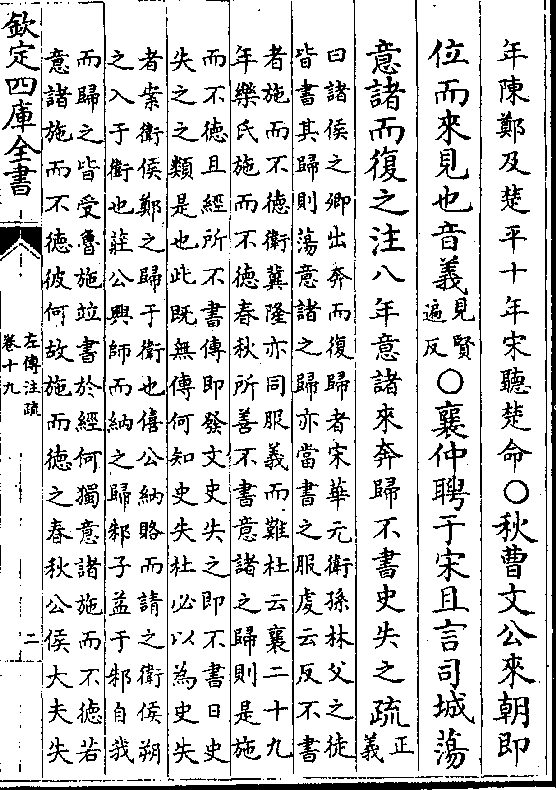 年陳鄭及楚平十年宋聽楚命〇秋曹文公來朝即
位而來見也音義見賢遍反〇襄仲聘于宋且言司城蕩
意諸而復之注八年意諸來奔歸不書史失之疏正義
曰諸侯之卿出奔而復歸者宋華元衛孫林父之徒
皆書其歸則蕩意諸之歸亦當書之服虔云反不書
者施而不德衛冀隆亦同服義而難杜云襄二十九
年樂氏施而不德春秋所善不書意諸之歸則是施
而不德且經所不書傳即發文史失之即不書日史
失之之類是也此既無傳何知史失杜必以為史失
者案衛侯鄭之歸于衛也僖公納賂而請之衛侯朔
之入于衛也莊公興師而納之歸邾子益于邾自我
而歸之皆受魯施竝書於經何獨意諸施而不德若
意諸施而不德彼何故施而德之春秋公侯大夫失
欽定四庫全書
左傳注疏
卷十九
二